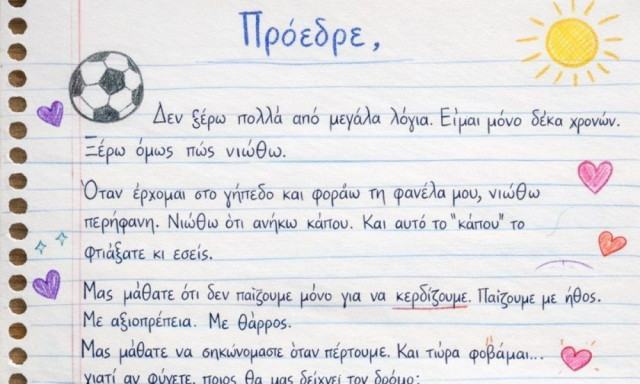 Πρόεδρε,
Δεν ξέρω πολλά από μεγάλα λόγια. Είμαι μόνο δέκα χρονών.
Ξέρω όμως πώς νιώθω.
Όταν έρχομαι στο γήπεδο και φοράω τη φανέλα μου, νιώθω
περήφανη. Νιώθω ότι ανήκω κάπου. Και αυτό το "κάπου" το
φτιάξατε κι εσείς.
Μας μάθατε ότι δεν παίζουμε μόνο για να κερδίζουμε. Παίζουμε με ήθος.
Με αξιοπρέπεια. Με θάρρος.
Μας μάθατε να σηκώνομαστε όταν πέφτουμε. Και τώρα φοβάμαι...
γιατί αν φύγετε, ποιος θα μας δείχνει τον δρόμο;